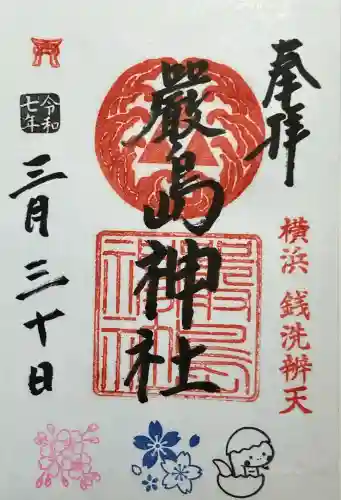 奉拝
横浜 銭洗辨天
嚴島神社
令和
七年
三月三十日